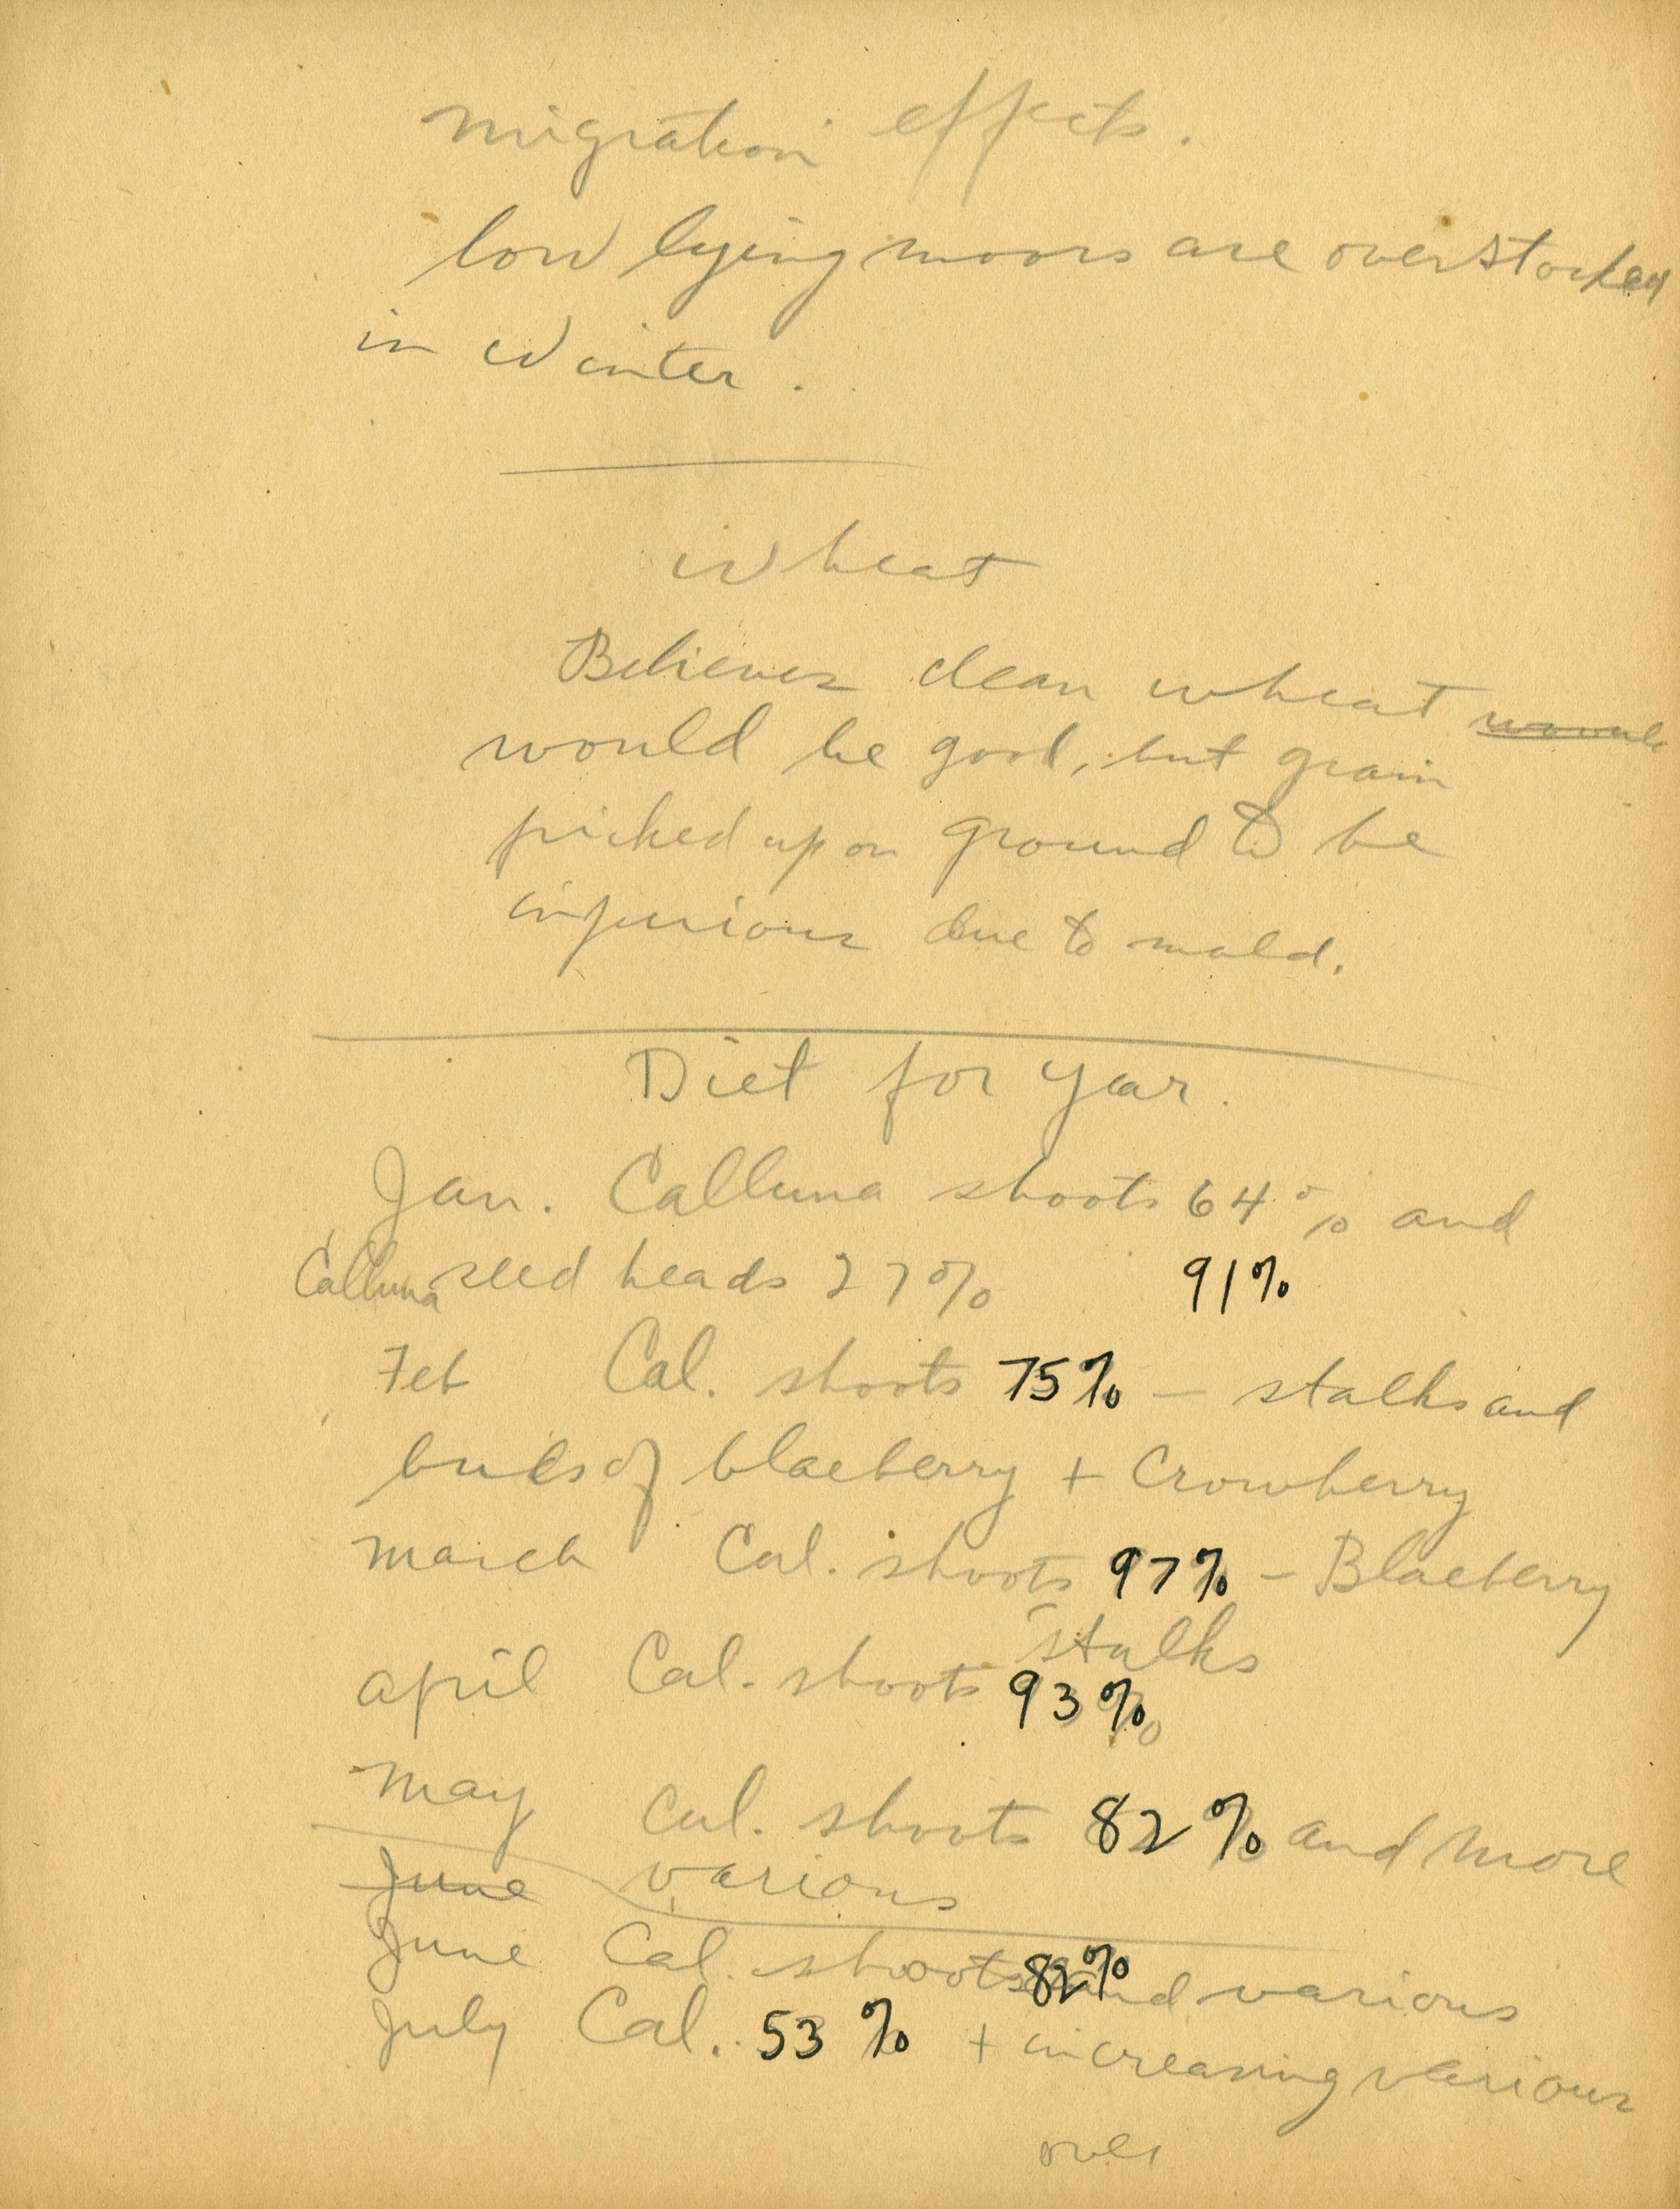 migration effects.
low lying moors are overstocked
in Winter.
Wheat
Believes clean wheat would
would be good, but grain
picked up on ground to be
injurious due to mold.
Diet for year.
Jan. Calluna shoots 64% and
Calluna seed heads 27% 91%
Feb Cal. shoots 75% - stalks and
buds of blaeberry + Crowberry
march Cal. shoots 97% - Blaeberry
stalks
april Cal. shoots 93%
may Cal. shoots 82% and more
June various
June Cal. shoots 82% and various
July Cal. 53% + increasing various
over